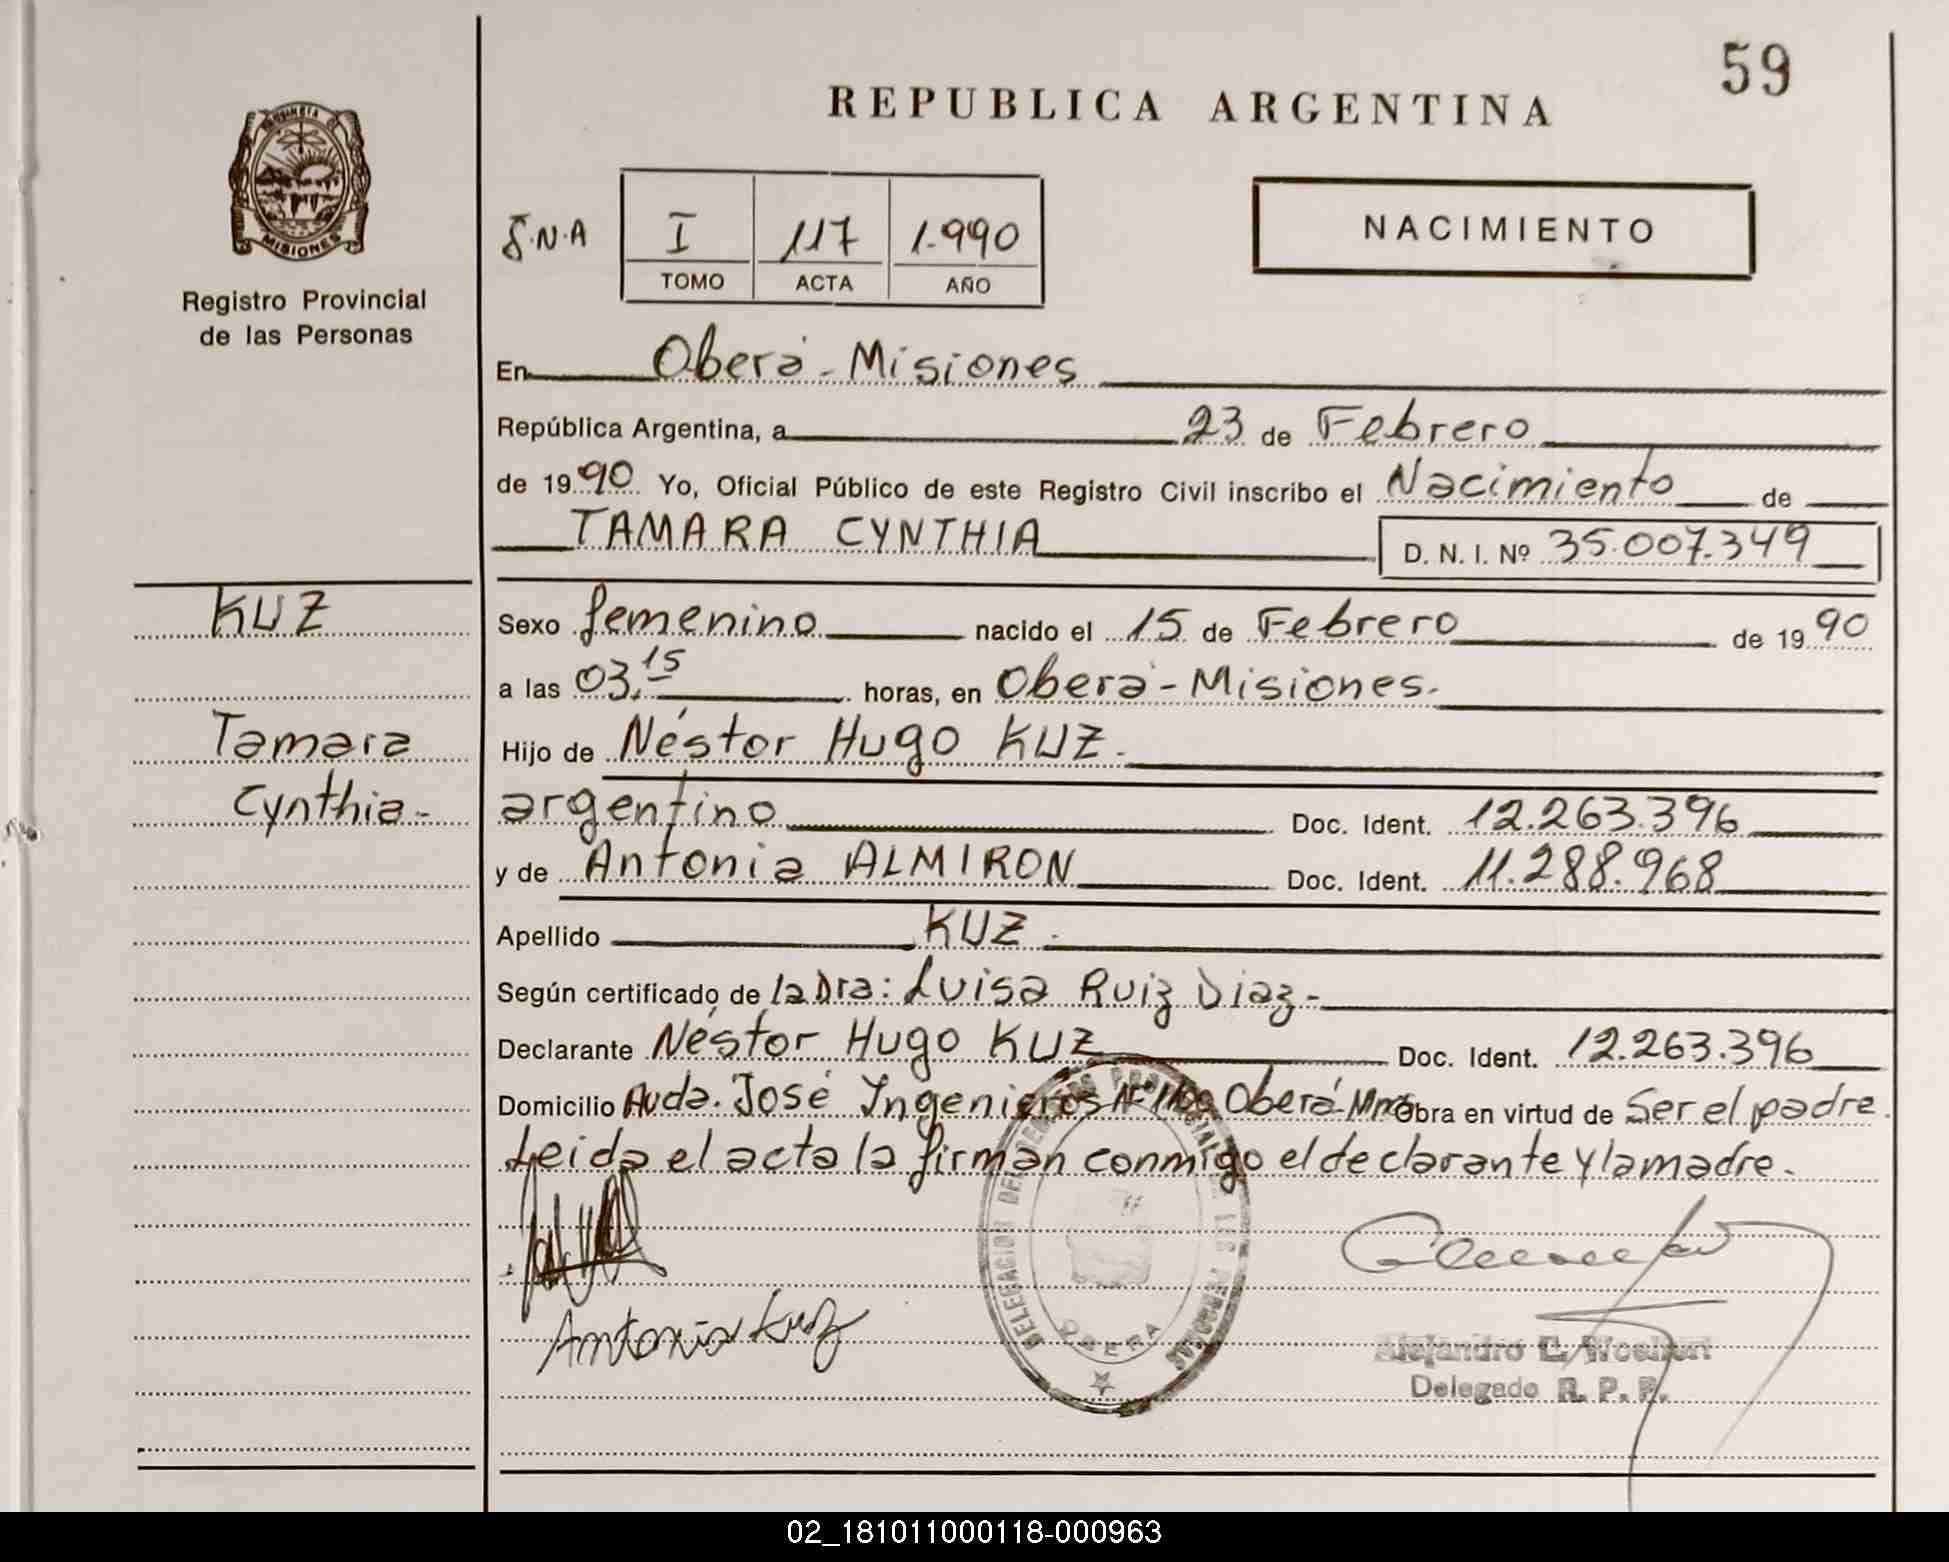 59
REPUBLICA ARGENTINA
PROVINCIA DE
MISIONES
Registro Provincial
de las Personas
S.N.A
I 117 1.990
TOMO ACTA AÑO
NACIMIENTO
En Oberá - Misiones
República Argentina, a 23 de Febrero
de 1990 Yo, Oficial Público de este Registro Civil inscribo el Nacimiento de
TAMARA CYNTHIA D. N. I. Nº 35.007.349
KUZ
Tamara
Cynthia-
Sexo femenino nacido el 15 de Febrero de 1990
a las 03.15 horas, en Oberá - Misiones.
Hijo de Néstor Hugo KUZ.
argentino Doc. Ident. 12.263.396
y de Antonia ALMIRON Doc. Ident. 11.288.968
Apellido KUZ.
Según certificado de la Dra: Luisa Ruiz Diaz-
Declarante Néstor Hugo KUZ Doc. Ident. 12.263.396
Domicilio Avda. José Ingenieros Nº Oberá-Mnes Obra en virtud de Ser el padre.
Leida el acta la firman conmigo el declarante y la madre.
DELEGACION DEL REGISTRO PROVINCIAL DE LAS PERSONAS
OBERA
Antonia Kuz
Alejandro E.
Delegado R. P. P.
02_181011000118-000963